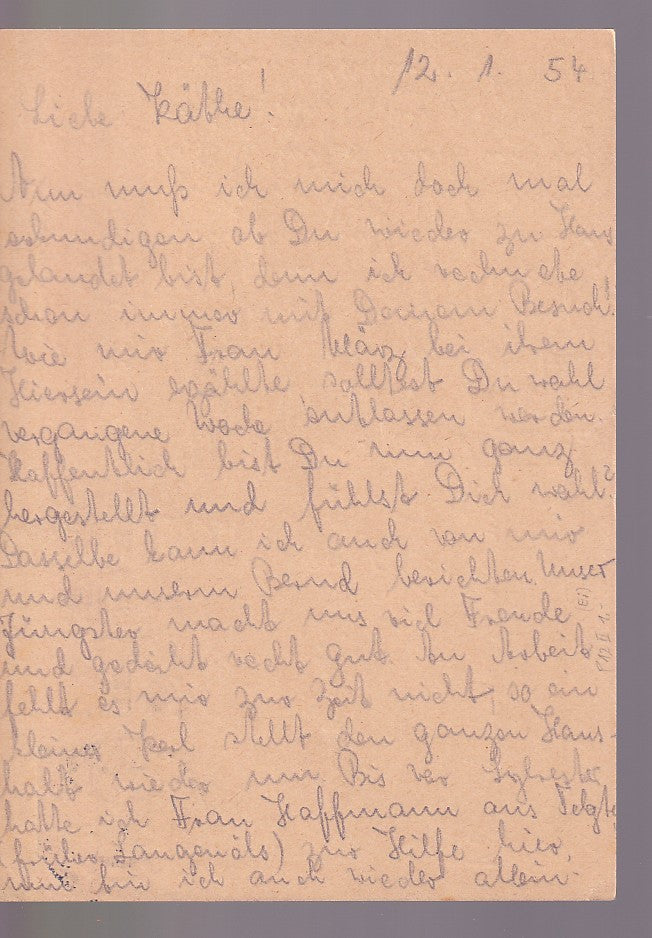 12. 1. 54
Liebe Käthe!
Nun muß ich mich doch mal
erkundigen ob Du wieder zu Haus
gelandet bist, denn ich rechne
schon immer mit Deinem Besuch!
Wie mir Frau März bei ihrem
Hiersein erzählte solltest Du wohl
vergangene Woche entlassen werden.
Hoffentlich bist Du nun ganz
hergestellt und fühlst Dich wohl?
Dasselbe kann ich auch von mir
und unserm Bernd berichten. Unser
Jüngster macht uns viel Freude
und gedeiht recht gut. An Arbeit
fehlt es mir zur Zeit nicht, so ein
kleiner Kerl stellt den ganzen Haus-
halt wieder um. Bis vor Sylvester
hatte ich Frau Hoffmann aus Telgte
(früher) zur Hilfe hier,
nun bin ich auch wieder allein.